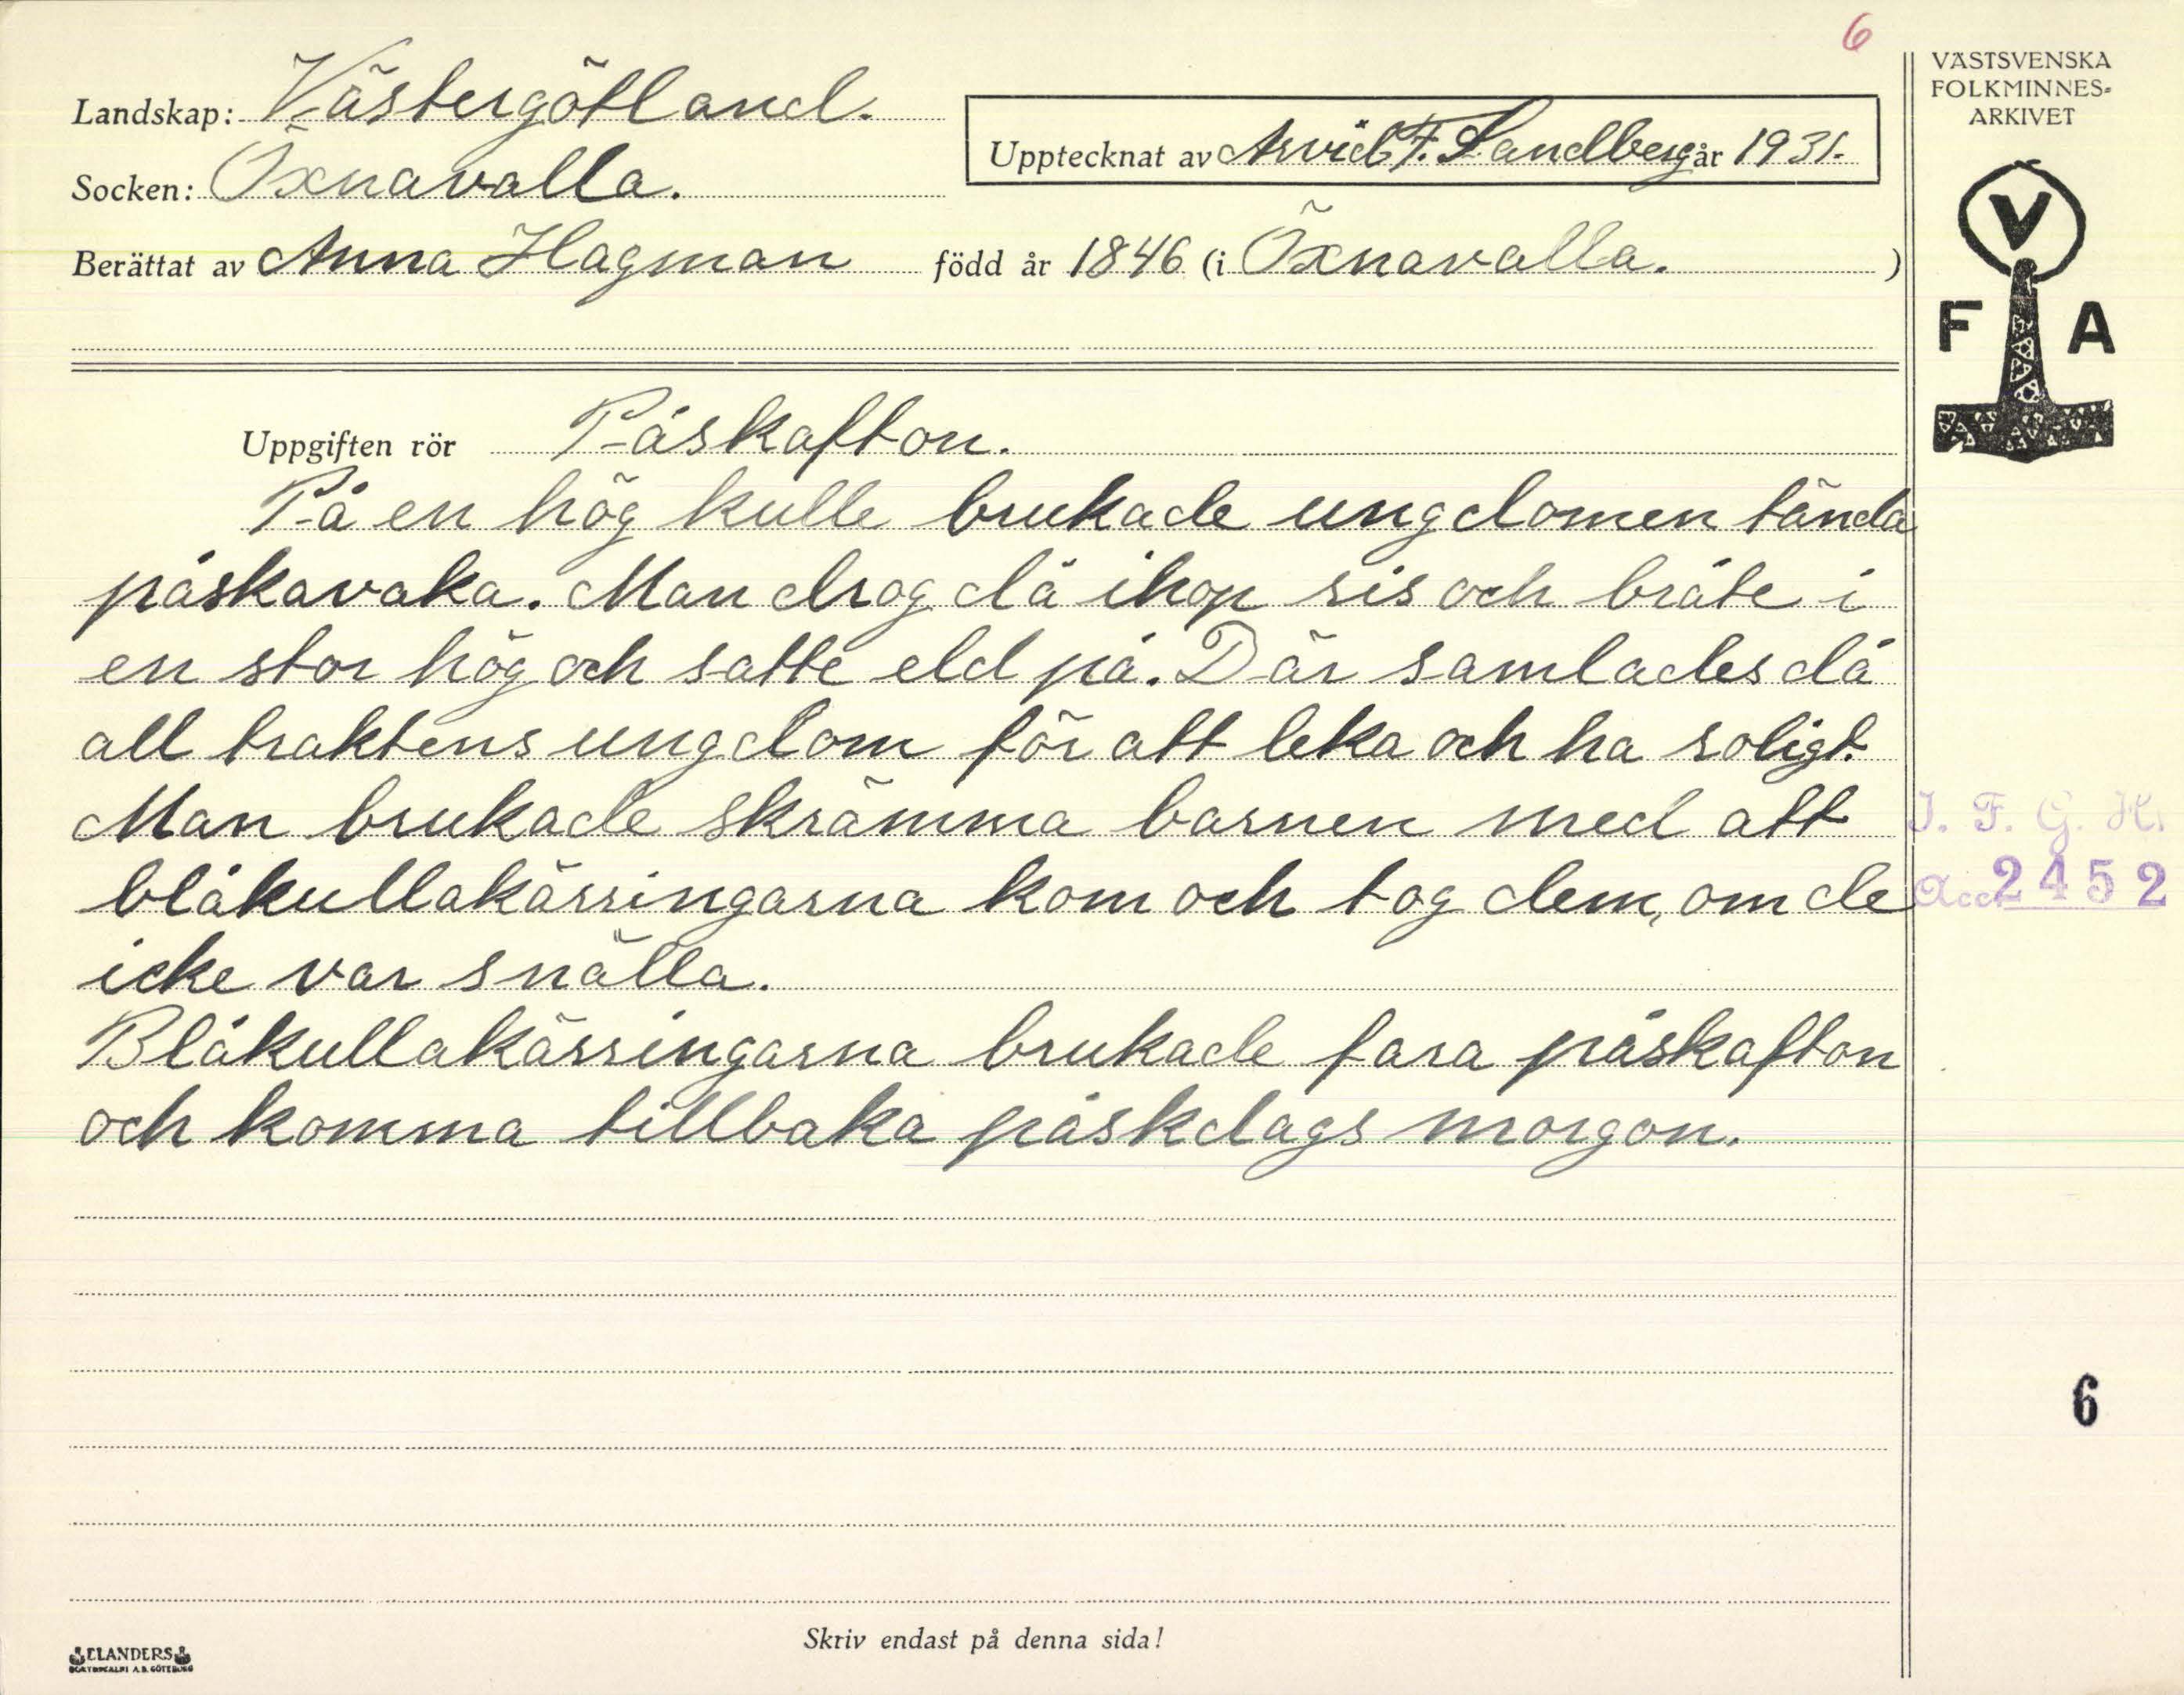 6
VÄSTSVENSKA
FOLKMINNES-
ARKIVET
Landskap: Västergötland.
Upptecknat av Arvid F. Sandberg år 1931.
Socken: Öxnavalla.
Berättat av Anna Hagman född år 1846 (i Öxnavalla. )
V
F A
Uppgiften rör Påskafton.
På en hög kulle brukade ungdomen tända
påskavaka. Man drog då ihop ris och bråte i
en stor hög och satte eld på. Där samlades då
all traktens ungdom för att leka och ha roligt.
Man brukade skrämma barnen med att
blåkullakärringarna kom och tog dem, om de
icke var snälla.
Blåkullakärringarna brukade fara påskafton
och komma tillbaka påskdags morgon.
I. F. G. H.
Acc. 2452
6
Skriv endast på denna sida!
ELANDERS
BOKTRYCKERI A.B. GÖTEBORG